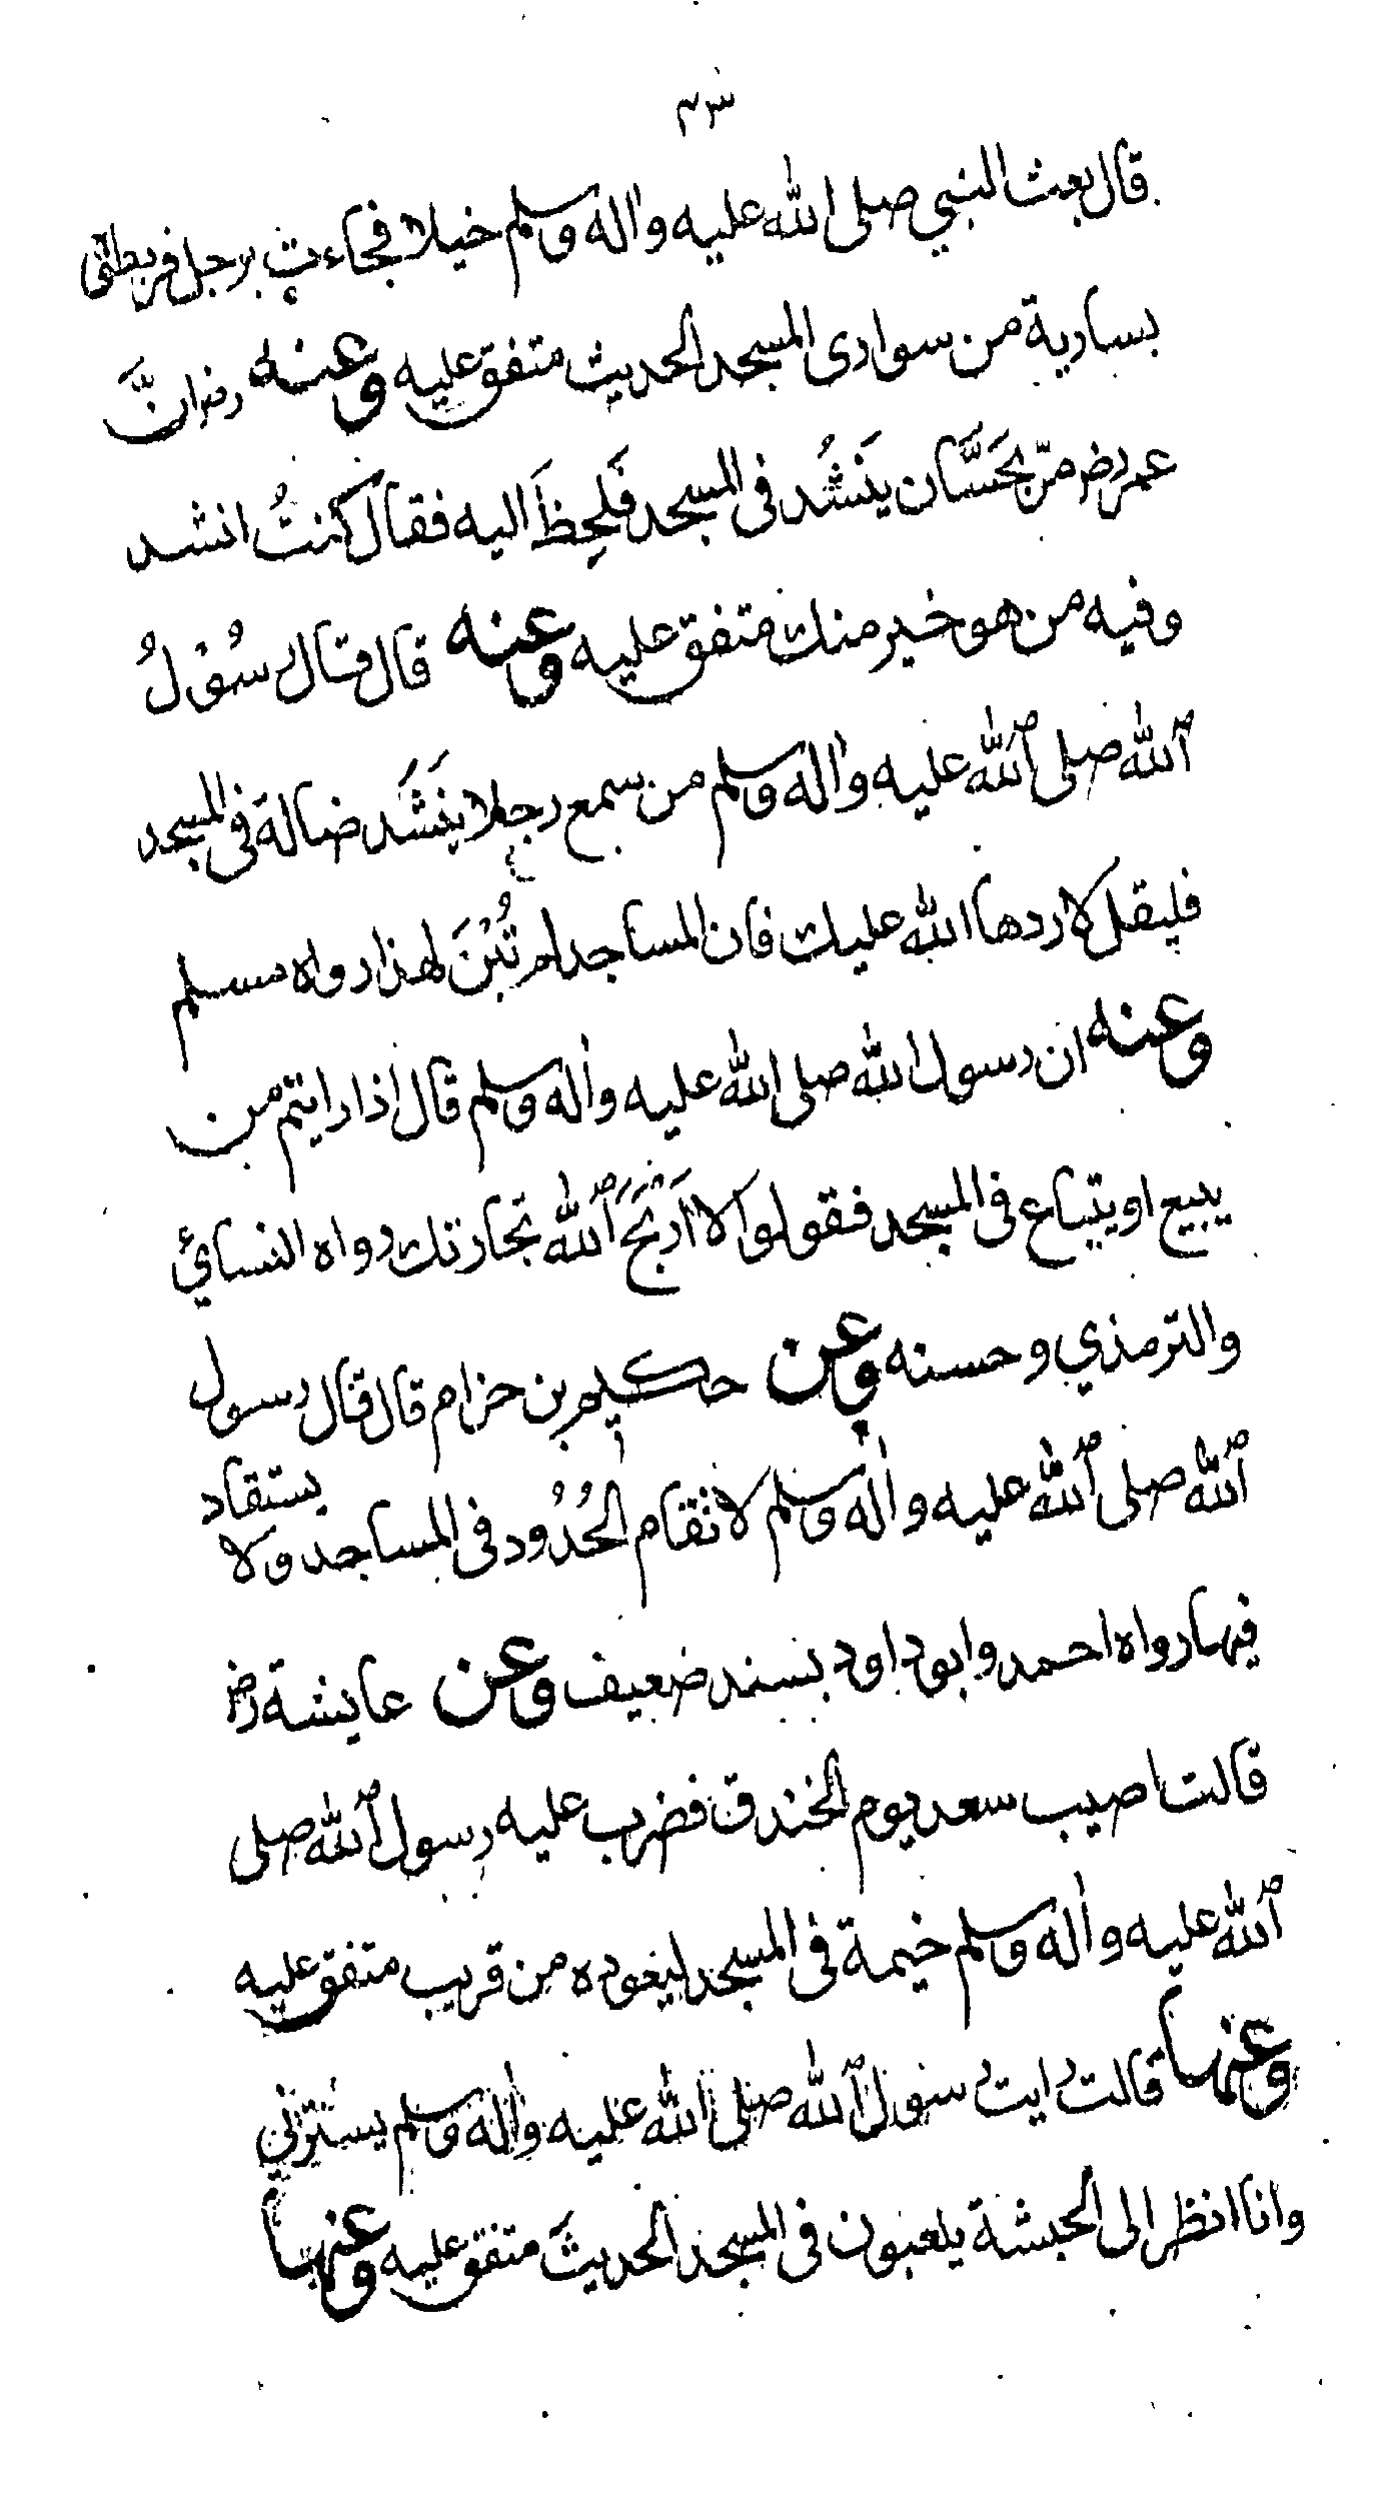 ٤٣
قال بعث النبي صلى الله عليه واله وسلم خيلا فجاءت برجل فربطوه
بسارية من سوارى المسجد الحديث متفق عليه وعنه رض انَّ
عمر رض مرّ بحَسَّان ينَشُد فى المسجد فَلحِظَ اليه فقال كنتُ انشد
وفيه من هو خير منك متفق عليه وعنه قال قال رسُوْلُ
الله صلى الله عليه واله وسلم من سمع رجلا ينَشَد ضالة فى المسجد
فليقل لا ردها الله عليك فان المساجد لم تُبْنَ لهذا رواه مسلم
وعنه ان رسول الله صلى الله عليه واله وسلم قال اذا رايتم من
يبيع او يبتاع فى المسجد فقولوا لا اَرَبَحَ الله تجارتك رواه النسائي
والترمذي وحسنه وعن حكيم بن حزام قال قال رسول
الله صلى الله عليه واله وسلم لا تقام الحُدُود فى المساجد ولا يستقاد
فيها رواه احمد وابو داود بسند ضعيف وعن عايشة رض
قالت اصيب سعد يوم الخندق فضرب عليه رسول الله صلى
الله عليه واله وسلم خيمة فى المسجد ليعوده من قريب متفق عليه
وعنها قالت رايت رسول الله صلى الله عليه واله وسلم يسترني
وانا انظر الى الحبشة يلعبون فى المسجد الحديثَ متفق عليه وعنها